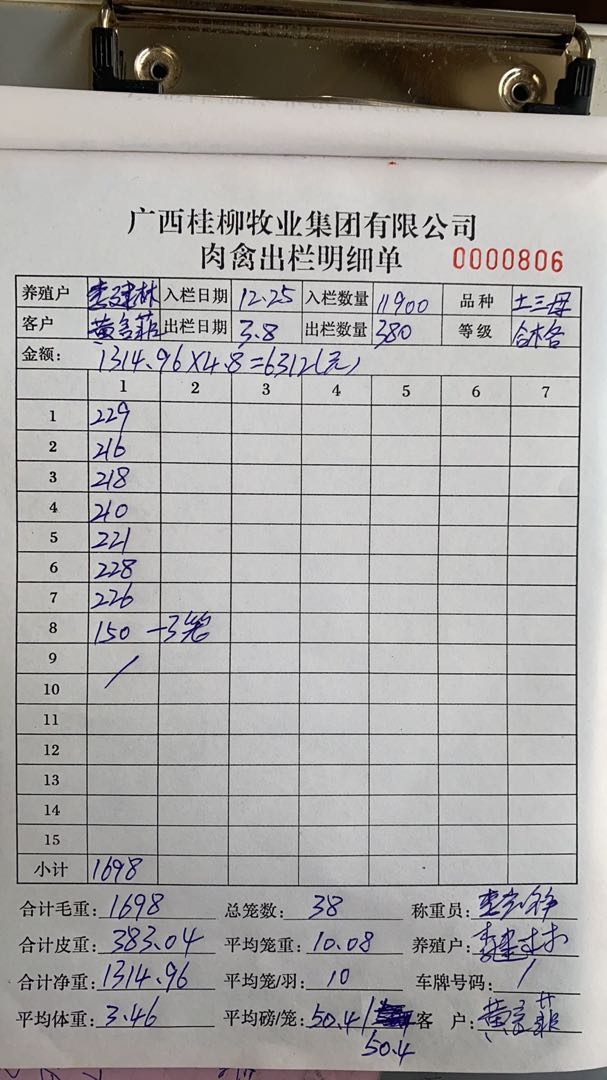 广西桂柳牧业集团有限公司
肉禽出栏明细单 0000806
养殖户 李建林 入栏日期 12.25 入栏数量 11900 品种 土三母
客户 出栏日期 3.8 出栏数量 380 等级 合格
金额: 1314.96×4.8=6312(元)
1 2 3 4 5 6 7
1 229
2 216
3 218
4 210
5 221
6 228
7 226
8 150 一3笼
9 /
10
11
12
13
14
15
小计 1698
合计毛重: 1698 总笼数: 38 称重员:
合计皮重: 383.04 平均笼重: 10.08 养殖户:
合计净重: 1314.96 平均笼/羽: 10 车牌号码: /
平均体重: 3.46 平均磅/笼: 50.4/ 客户:
50.4